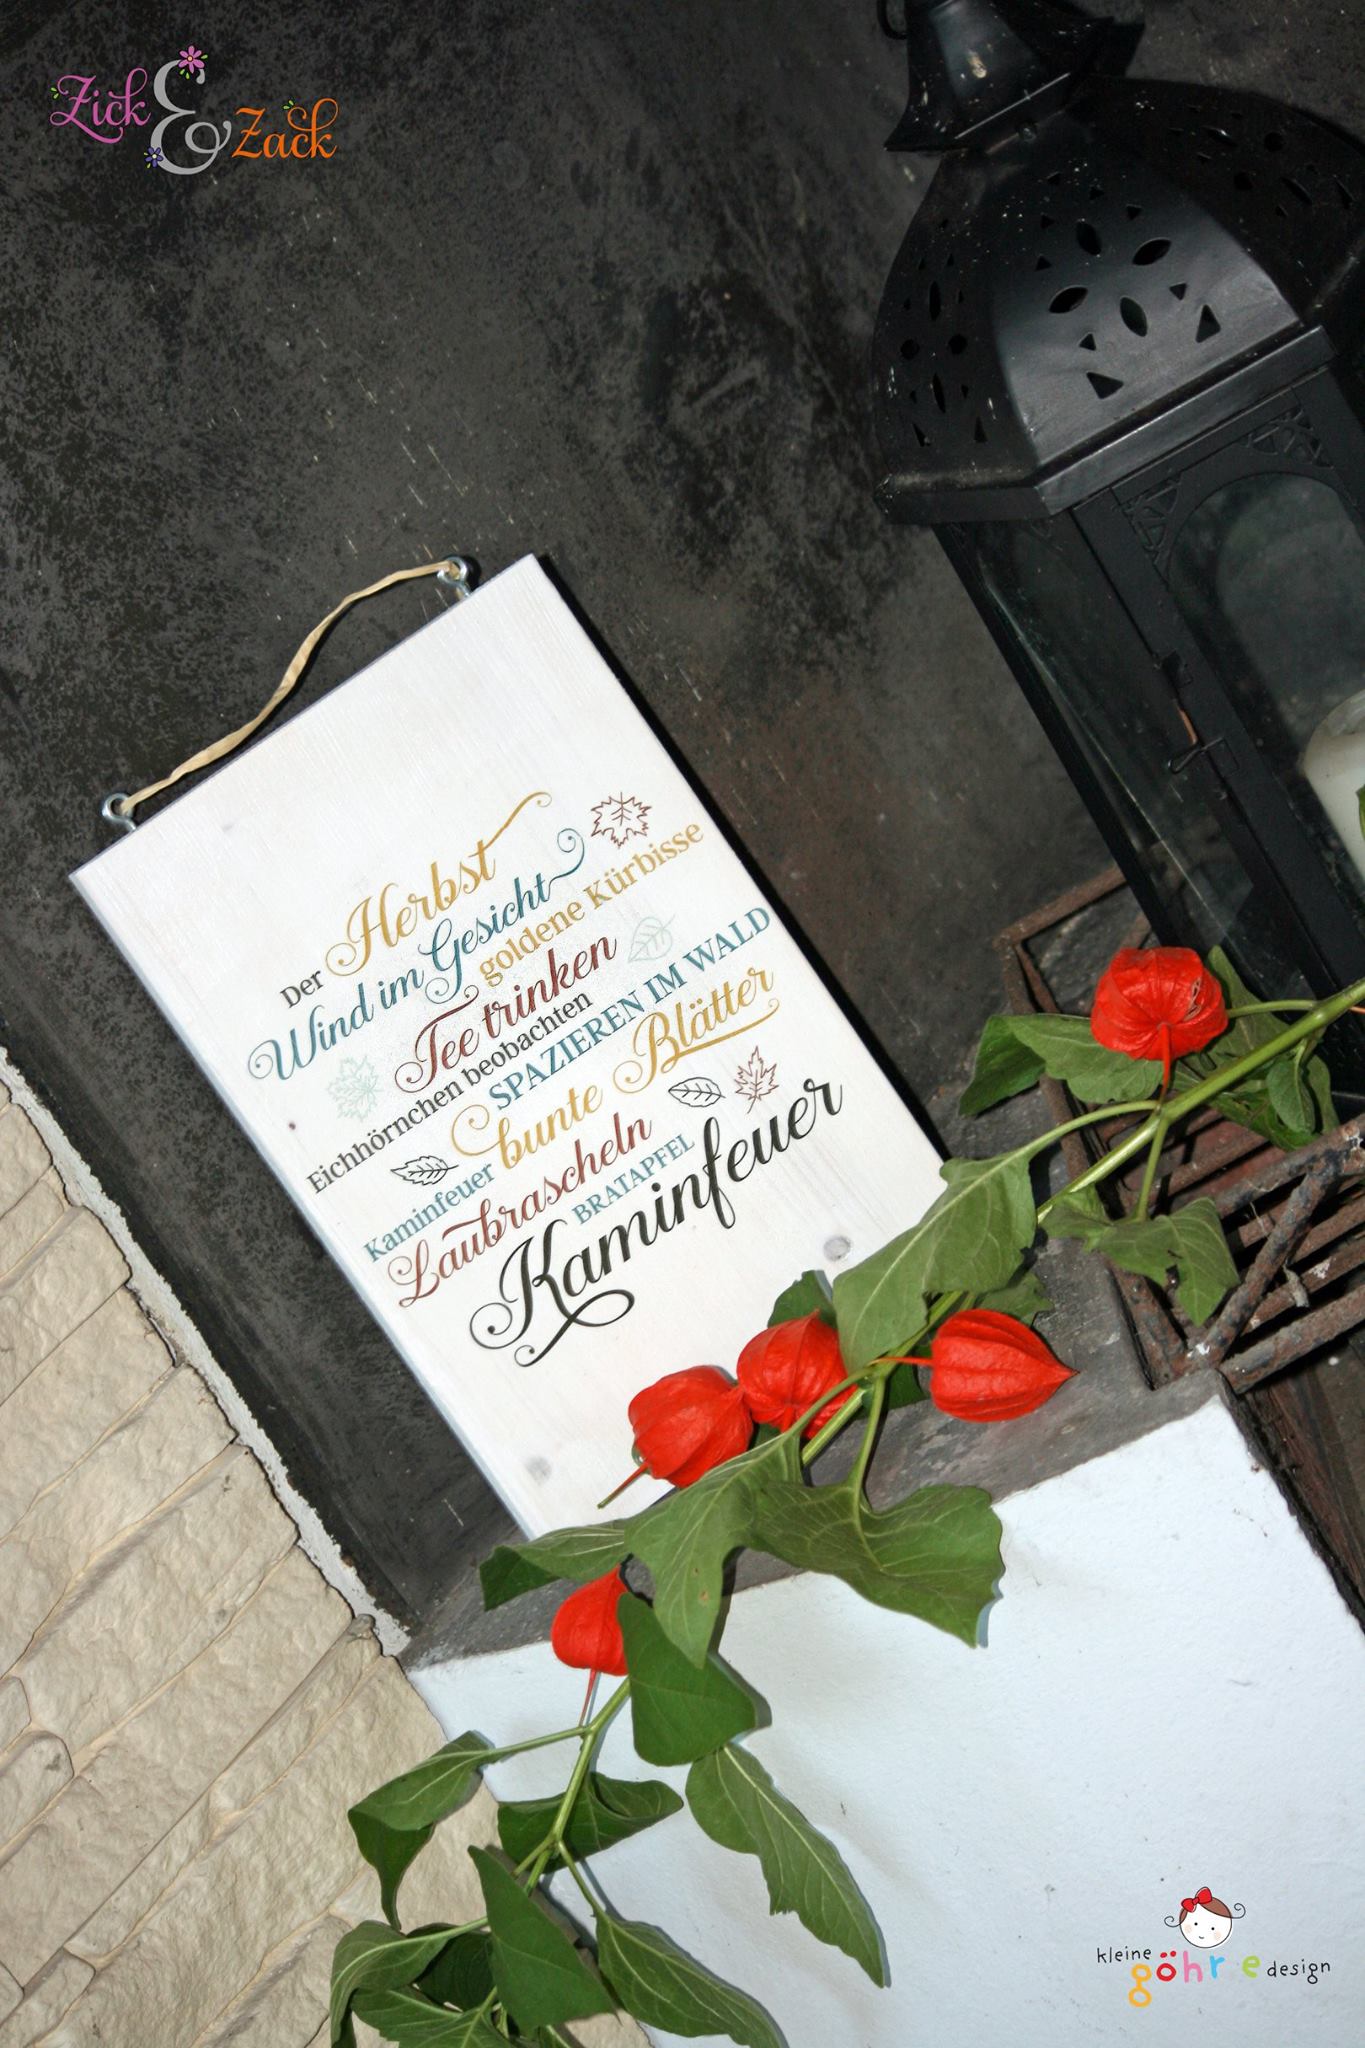 Zick & Zack
Der Herbst
Wind im Gesicht
goldene Kürbisse
Tee trinken
Eichhörnchen beobachten
SPAZIEREN IM WALD
bunte Blätter
Kaminfeuer
Laubrascheln
BRATAPFEL
Kaminfeuer
kleine göhre design